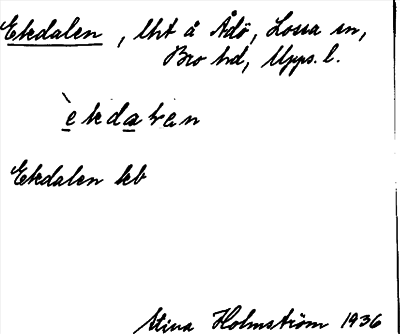 Ekdalen, lht å Ådö, Lossa sn,
Bro hd, Upps. l.
èkdaƚen
Ekdalen kb
Stina Holmström 1936